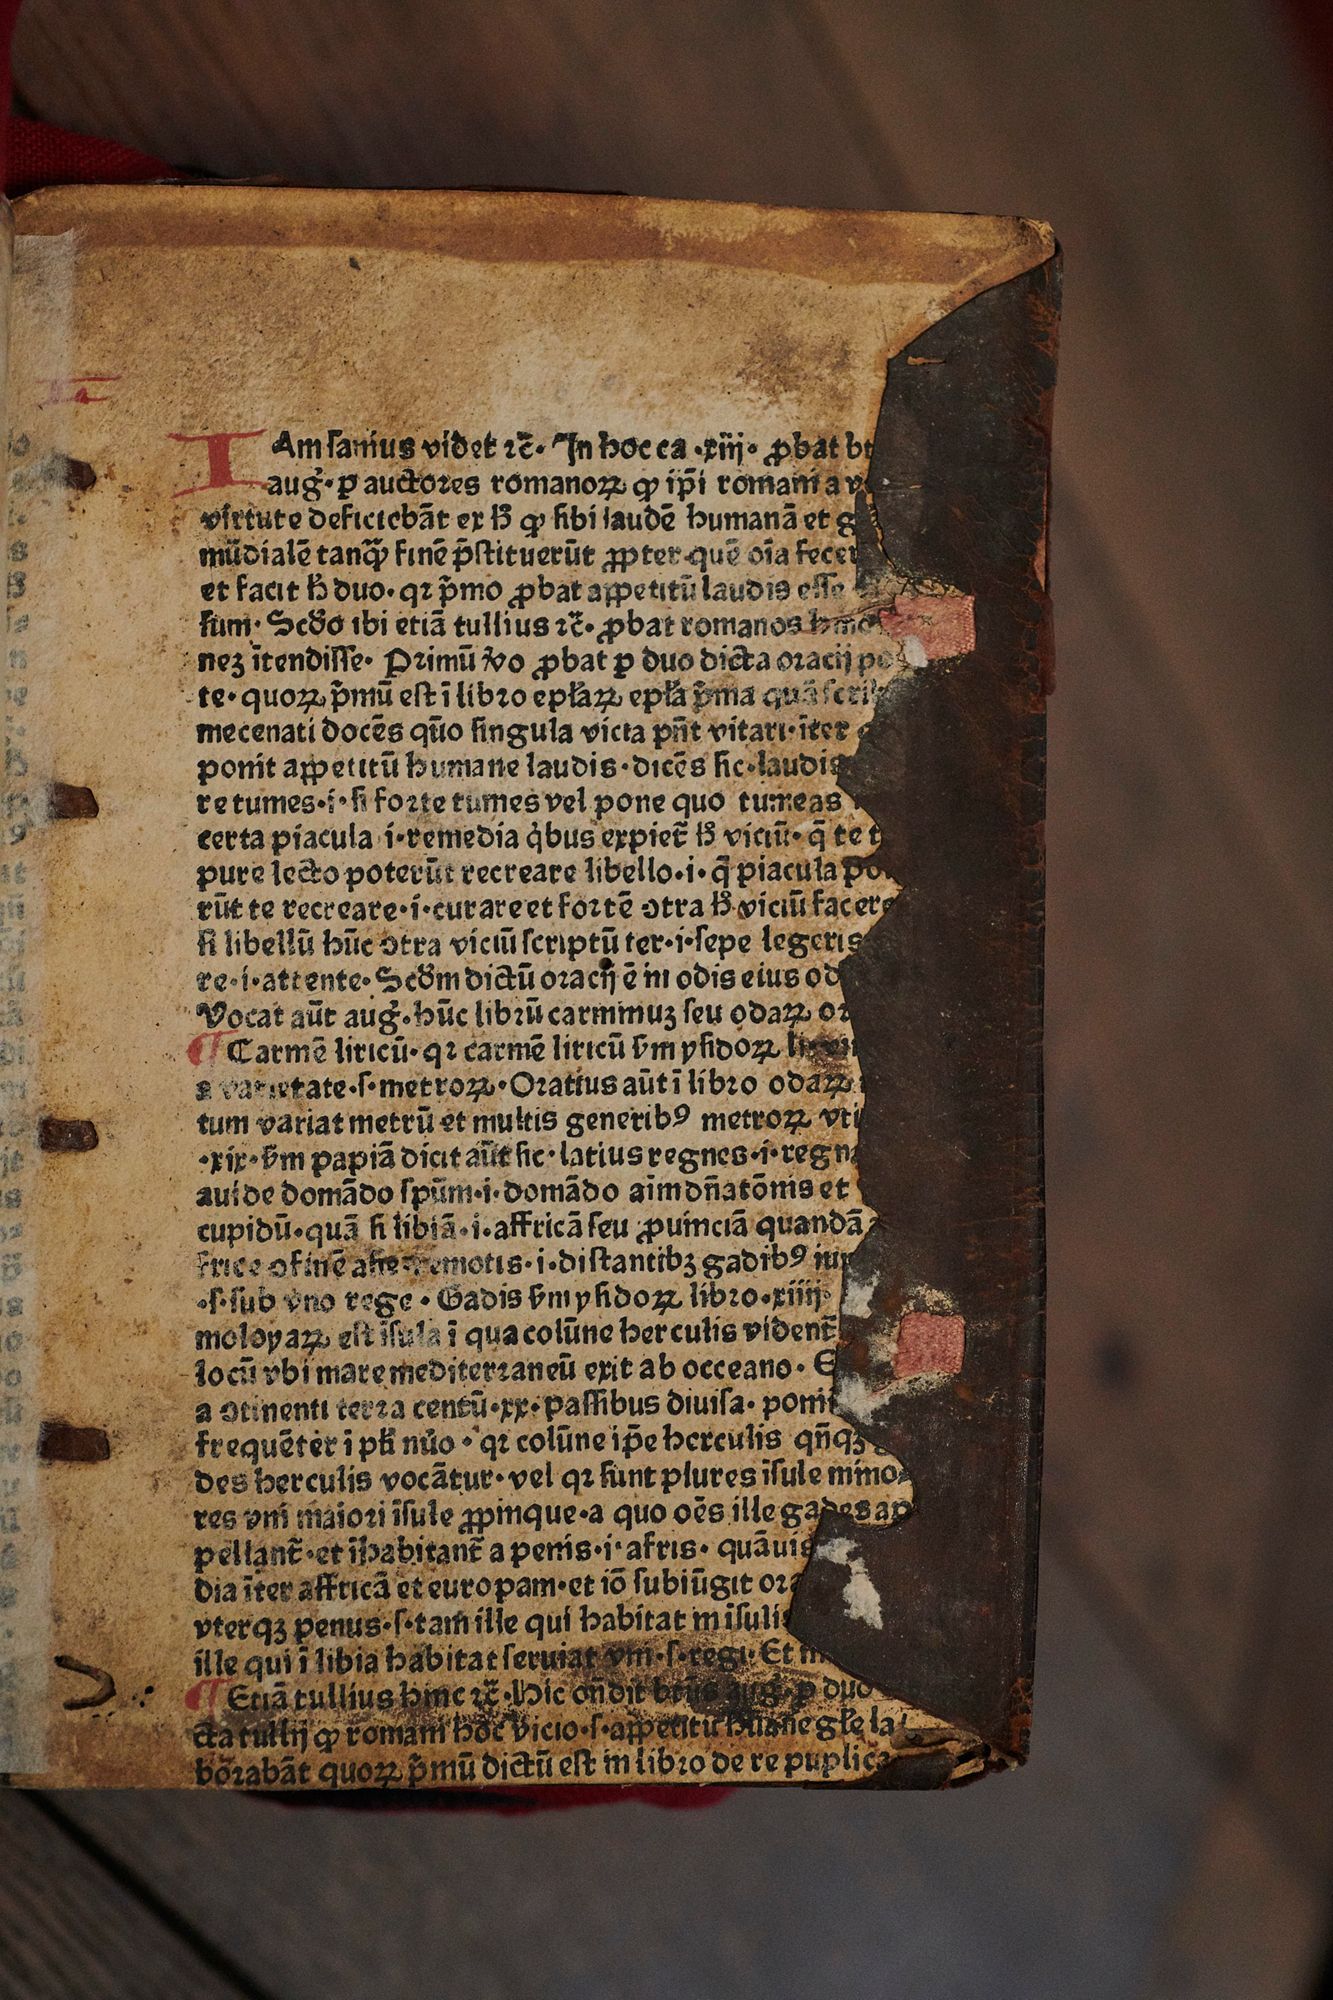 IAm sanius videt ⁊c̄. In hoc ca .xiij. ꝓbat
aug̛. ꝑ auctores romanoꝝ ꝙ ip̄i romani a
virtute deficiebāt ex hͦ ꝙ sibi laudē humanā et
mūdialē tanꝙ̄ finē p̄stituerūt ꝓpter quē oīa
et facit hͦ duo. qꝛ p̄mo ꝓbat appetitū laudis esse
sum. Scd̄o ibi etiā tullius ⁊c̄. ꝓbat romanos
neꝫ ītendisse. Primū v̊o ꝓbat ꝑ duo dicta oracij
te. quoꝝ p̄mū est ī libro ep̄laꝝ ep̄la p̄ma quā
mecenati docēs qūo singula victa pn̄t vitari. īter
ponit appetitū humane laudis. dicēs sic. laudis
re tumes. i. si forte tumes vel pone quo tumeas
certa piacula i. remedia q̇bus expiet̄ hͦ viciū. q̄ te
pure lecto poterūt recreare libello. i. q̄ piacula
rūt te recreare. i. curare et fortē ↄtra hͦ viciū facere
si libellū hūc ↄtra viciū scriptū ter. i. sepe legeris
re. i. attente. Scd̄m dictū oracij ē in odis eius
Vocat aūt aug̛. hūc librū carminuꝫ seu odaꝝ
¶ Carmē liricū. qꝛ carmē liricū ẜm ysidoꝝ
a varietate .s. metroꝝ. Oratius aūt ī libro odaꝝ
tum variat metrū et multis generibꝰ metroꝝ
.xix. ẜm papiā dicit aūt sic. latius regnes. i.
auide domādo sp̄um. i. domādo aīm dn̄atōnis et
cupidū. quā si libiā. i. affricā seu ꝓuinciā quandā
frice ↄfinē remotis. i. distantibꝫ gadibꝰ
.s. sub vno rege. Gadis ẜm ysidoꝝ libro .xiiij.
est īsula ī qua colūne herculis vident̄
locū vbi mare mediterraneū exit ab occeano.
a ↄtinenti terra centū .xx. passibus diuisa.
frequēter ī pl̄i nūo. qꝛ colūne ip̄e herculis qn̄qꝫ
des herculis vocātur. vel qꝛ sunt plures īsule mino
res vni maiori īsule ꝓpinque. a quo oēs ille gades ap
pellant̄. et īhabitant̄ a penis. i. afris. quāuis
dia īter affricā et europam. et iō subiūgit
vterqꝫ penus. s. tam ille qui habitat in īsulis
ille qui ī libia habitat seruiat vni .s. regi. Et
¶ Etiā tullius hinc ⁊c̄. Hic on̄dit btūs aug̛. ꝑ duo
cta tullij ꝙ romani hoc vicio .s. appetitu hūane gl̄e la
borabāt quoꝝ p̄mū dictū est in libro de re